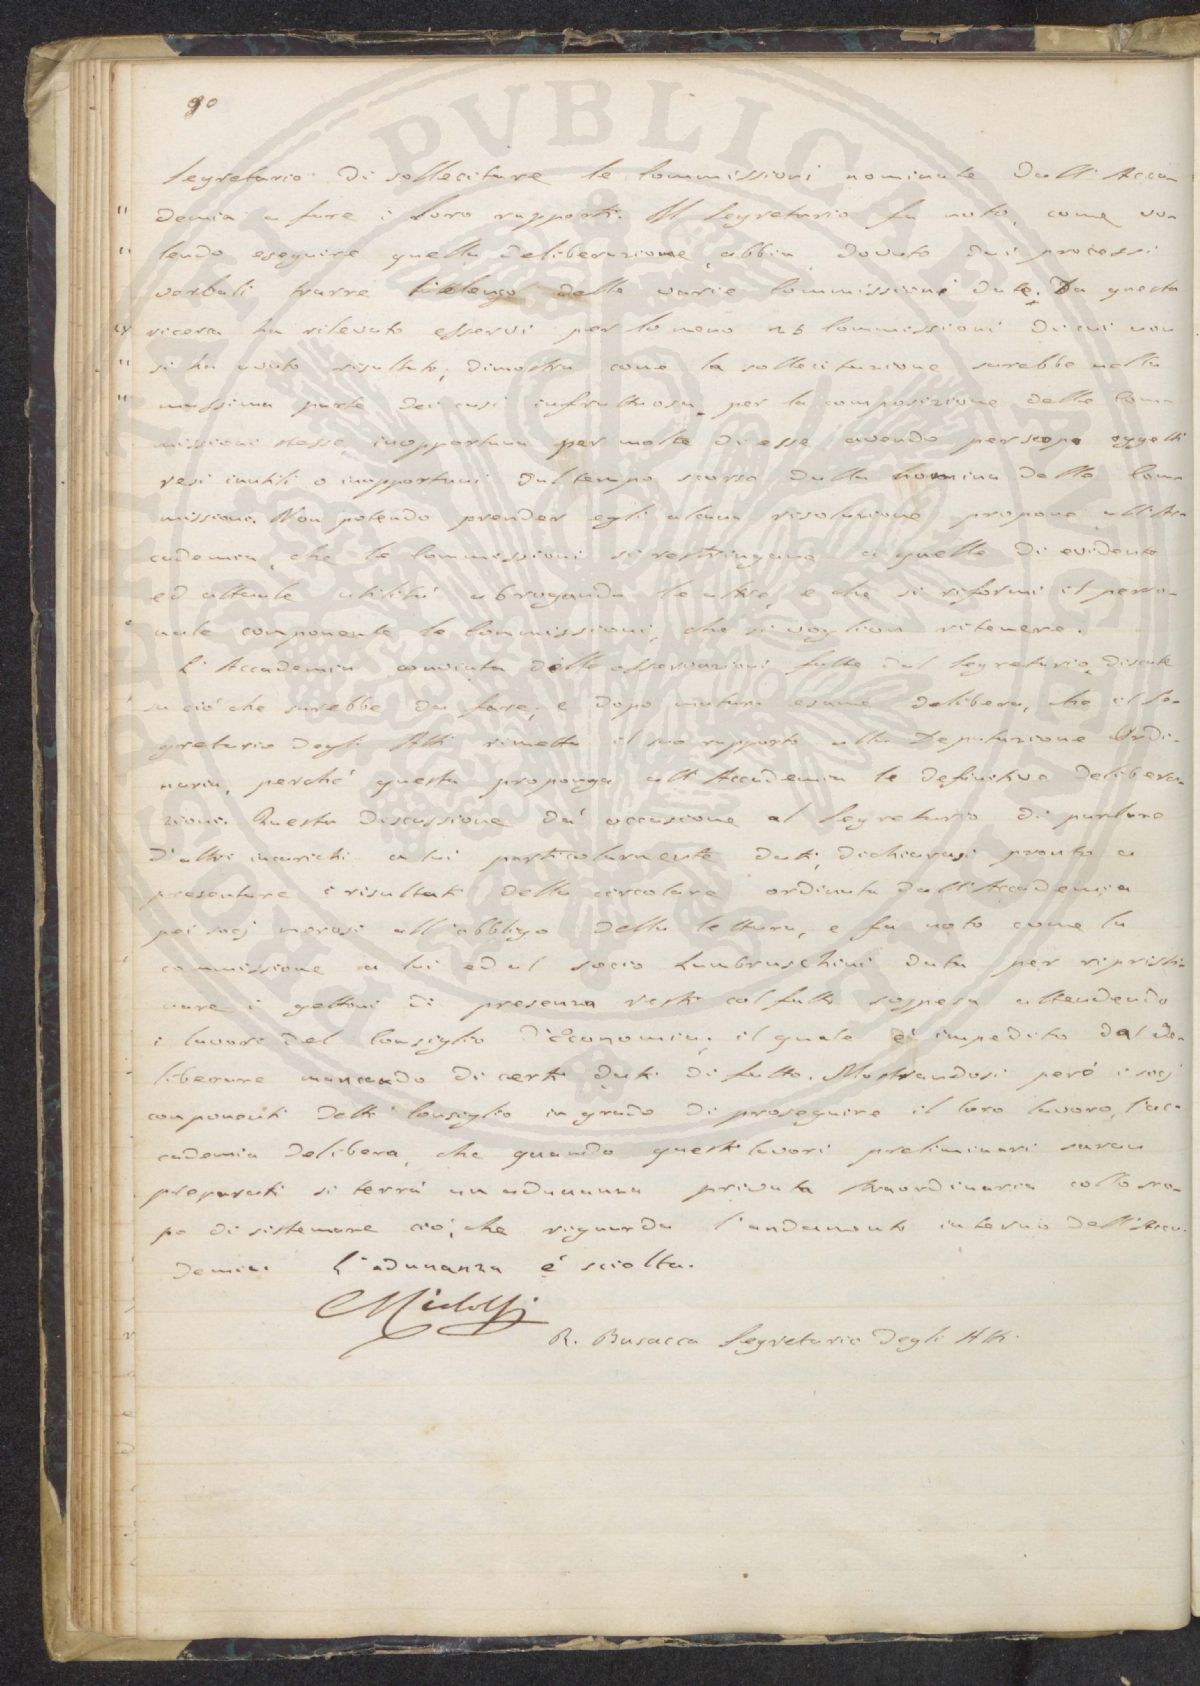 90
Segretario di sollecitare le Commissioni nominate dall'Acca=
demia a fare i loro rapporti. Il Segretario fa noto, come vo=
lendo eseguire quella deliberazione, abbia dovuto dai processi
verbali trarre l'elenco delle varie Commissioni date. Da questa
ricerca ha rilevato esservi per lo meno 25 Commissioni di cui non
si ha avuto risultato; dimostra come la sollecitazione sarebbe nella
massima parte dei casi infruttuosa per la composizione delle Com=
missioni stesse, inopportuna per molte di esse avendo per scopo oggetti
resi inutili o inopportuni dal tempo scorso dalla nomina delle Com=
missioni. Non potendo prender egli alcuna risoluzione propone all'Ac
cademia, che le Commissioni si restringano a quelle di evidente
ed attuale utilità abrogando le altre, e che si riformi il perso=
nale componente le Commissioni, che si voglion ritenere.
L'Accademia convinta delle osservazioni fatte dal Segretario, discute
su ciò che sarebbe da fare, e dopo maturo esame delibera, che il Se=
gretario degli Atti rimetta il suo rapporto alla Deputazione Ordi=
naria, perché questa proponga all'Accademia le definitive delibera=
zioni. Questa discussione dà occasione al Segretario di parlare
d'altri incarichi a lui particolarmente dati, dichiarasi pronto a
presentare i risultati della circolare ordinata dall'Accademia
pei socj morosi all'obbligo della lettura, e fa noto come la
commissione a lui ed al socio Lambruschini data per ripristi=
nare i gettoni di presenza resti col fatto sospesa attendendo
i lavori del Consiglio d'Economia, il quale è impedito dal de=
liberare mancando di certi dati di fatto. Mostrandosi però i socj
componenti detto Consiglio in grado di proseguire il loro lavoro, l'ac=
cademia delibera, che quando questi lavori preliminari saran
preparati si terrà un adunanza privata straordinaria collo sco=
po di sistemare ciò, che riguarda l'andamento interno dell'Acca=
demia. L'adunanza è sciolta.
CRidolfi
R. Busacca Segretario degli Atti